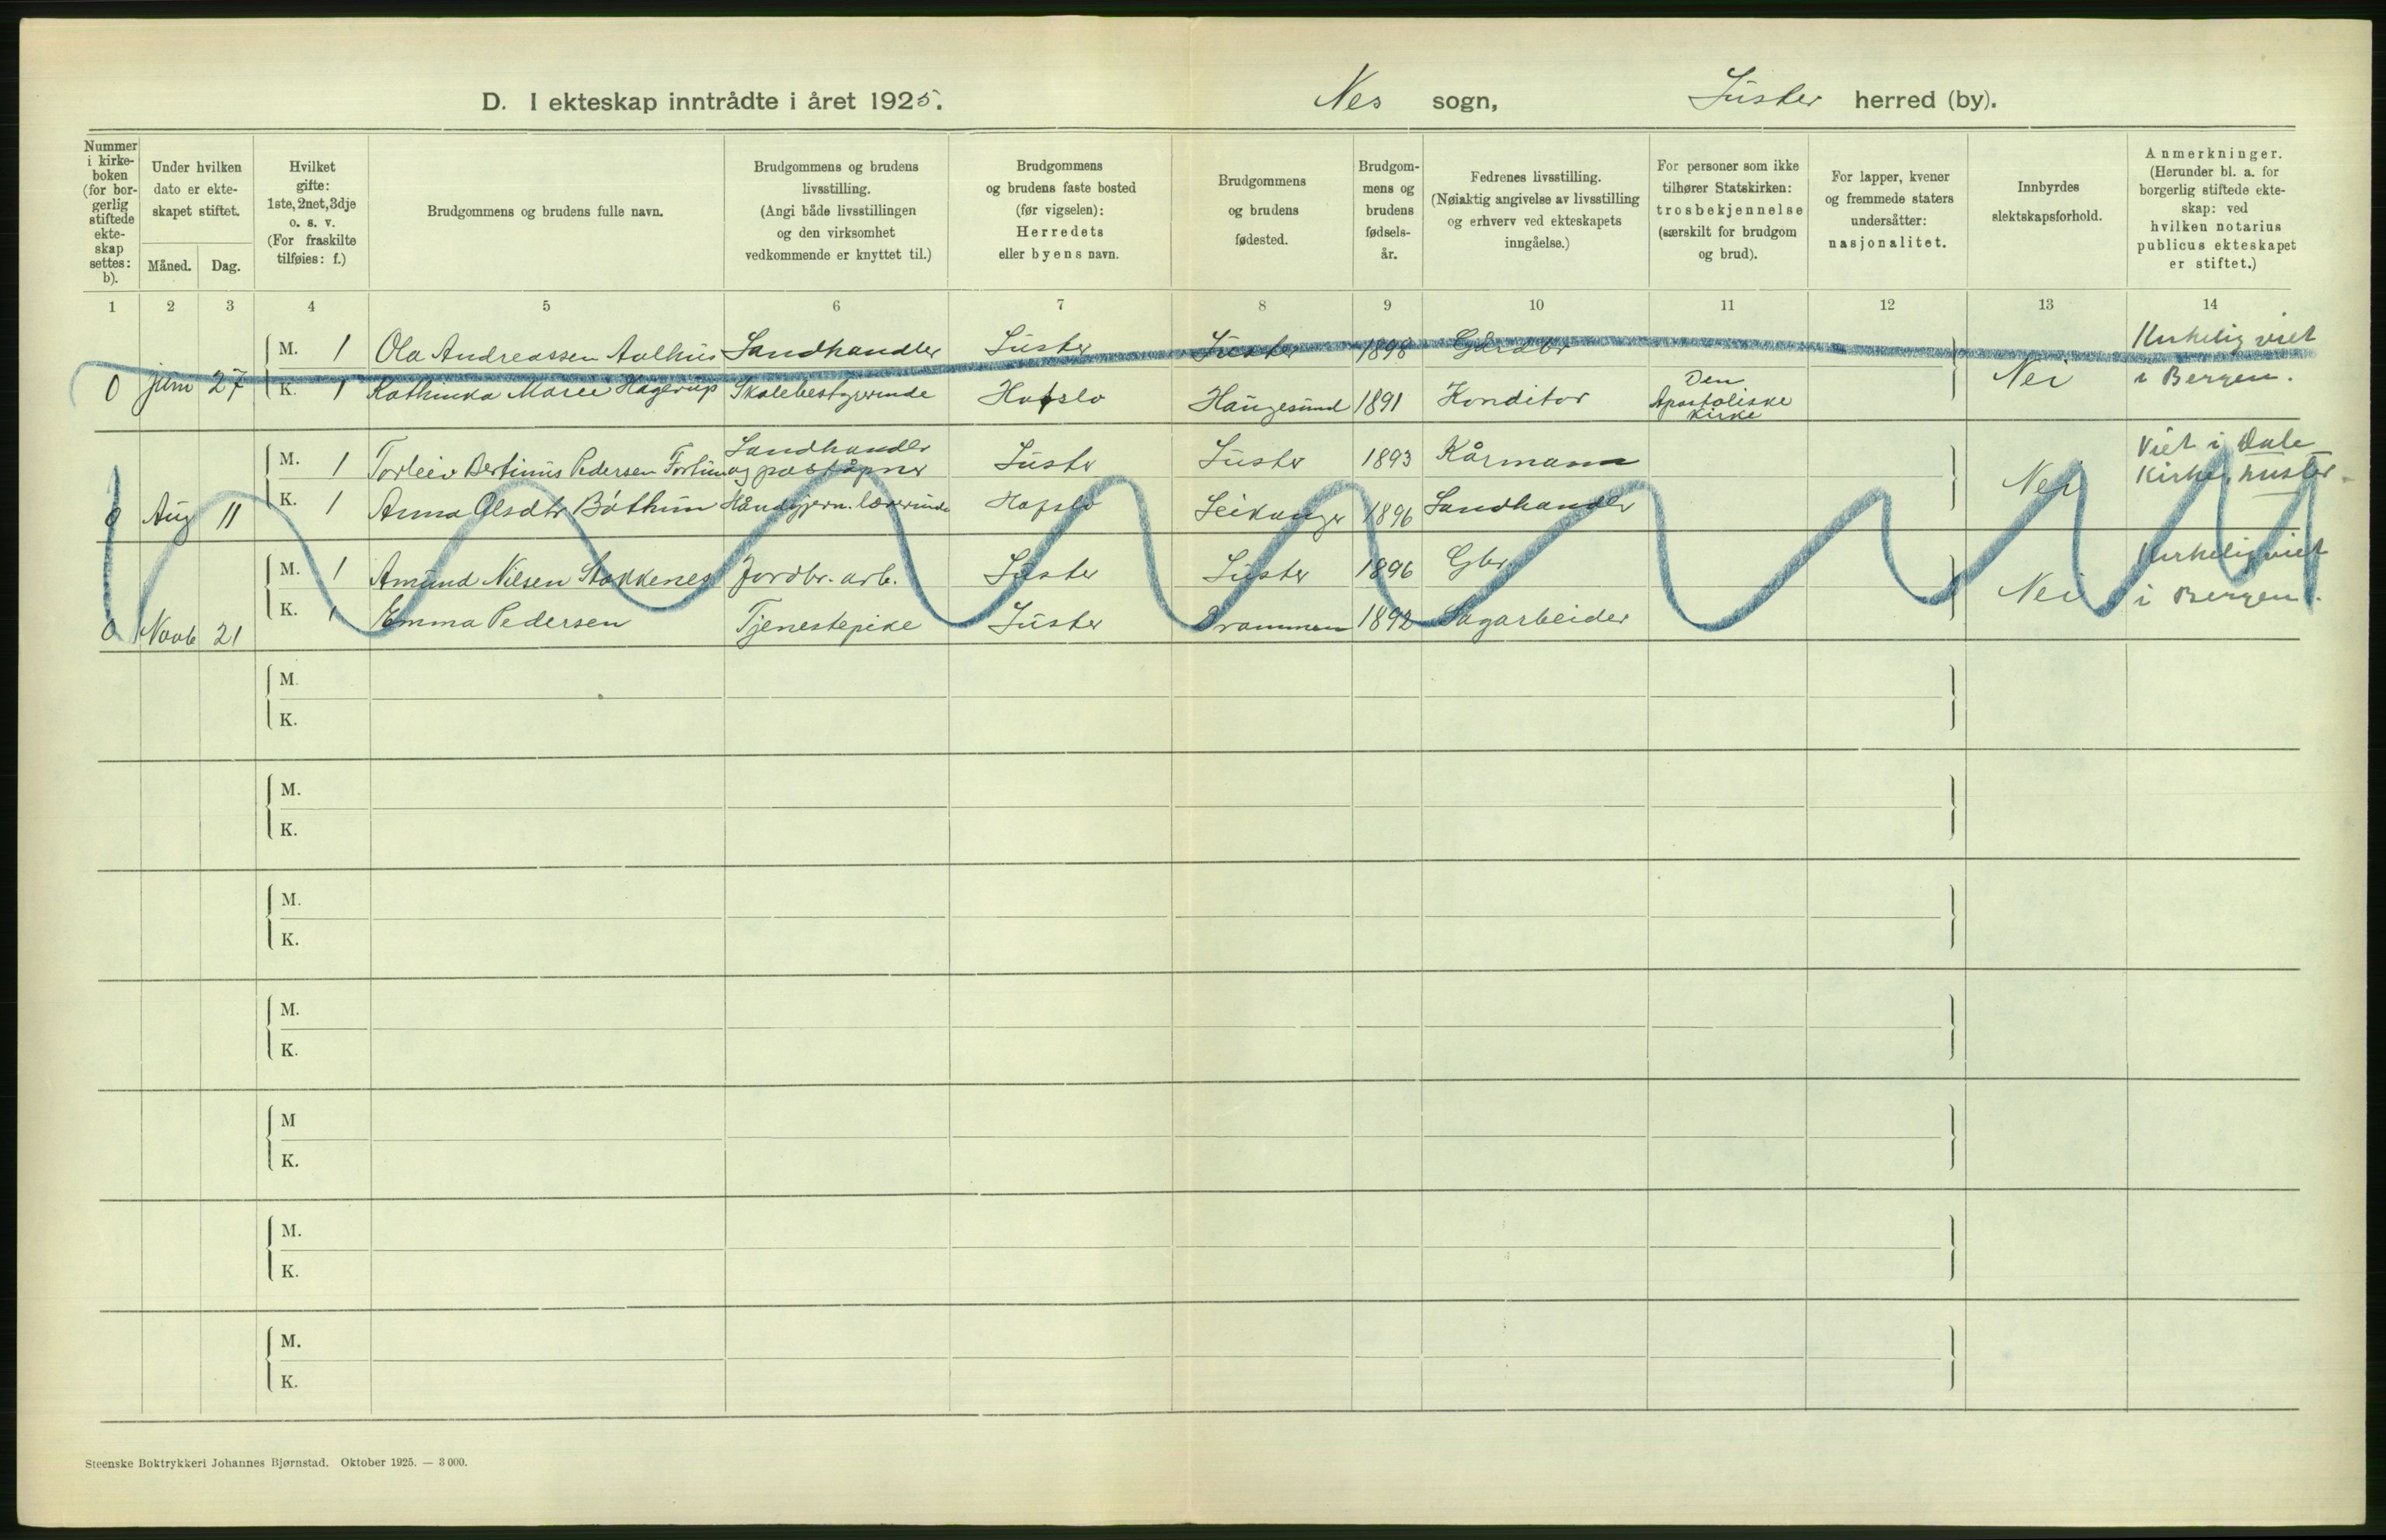 D. I ekteskap inntrådte i året 1925. Nes sogn, Luster herred (by).
Nummer i kirkeboken (for borgerlig stiftede ekteskap settes: b).
Under hvilken dato er ekteskapet stiftet.
Måned. Dag.
Hvilket gifte: 1ste, 2net, 3dje o. s. v. (For fraskilte tilføies: f.)
Brudgommens og brudens fulle navn.
Brudgommens og brudens livsstilling. (Angi både livsstillingen og den virksomhet vedkommende er knyttet til.)
Brudgommens og brudens faste bosted (før vigselen): Herredets eller byens navn.
Brudgommens og brudens fødested.
Brudgommens og brudens fødselsår.
Fedrenes livsstilling. (Nøiaktig angivelse av livsstilling og erhverv ved ekteskapets inngåelse.)
For personer som ikke tilhører Statskirken: trosbekjennelse (særskilt for brudgom og brud).
For lapper, kvener og fremmede staters undersåtter: nasjonalitet.
Innbyrdes slektskapsforhold.
Anmerkninger. (Herunder bl. a. for borgerlig stiftede ekteskap: ved hvilken notarius publicus ekteskapet er stiftet.)
1 2 3 4 5 6 7 8 9 10 11 12 13 14
M. 1 Ola Andreassen Aalhus Landhandler Luster Luster 1898 Gårdbr Kirkelig viet
0 juni 27 K. 1 Kathinka Marie Hagerup Skolebestyrerinde Hafslo Haugesund 1891 Konditor Den Apostoliske Kirke Nei i Bergen.
M. 1 Torleiv Bertinus Pedersen Fortun Landhandler og poståpner Luster Luster 1893 Kårmann Viet i Dale
0 Aug 11 K. 1 Anna Olsdtr Bøthun Håndgjern. lærerinde Hafslo Leikanger 1896 Landhandler Nei Kirke, Luster.
M. 1 Amund Nilsen Stokkenes Jordbr. arb. Luster Luster 1896 Gbr. Kirkelig viet
0 Novb 21 K. 1 Emma Pedersen Tjenestepike Luster Drammen 1892 Sagarbeider Nei i Bergen.
M.
K.
M.
K.
M.
K.
M.
K.
M
K.
M.
K.
M.
K.
Steenske Boktrykkeri Johannes Bjørnstad. Oktober 1925. — 3 000.